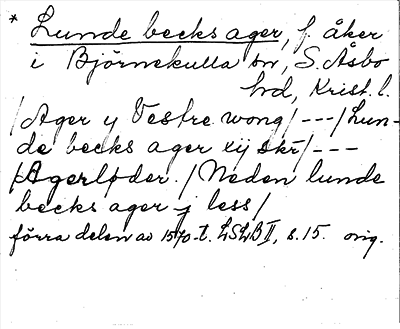 * Lunde becks ager, f. åker
i Björnekulla sn, S. Åsbo
hd, Krist. l.
/Ager y Vestre wong/ ---/Lun-
de becks ager xij skr/ ---
/Agerløder./Neden lunde
becks ager j less/
förra delen av 1570-t. LSLB II, s. 15. orig.